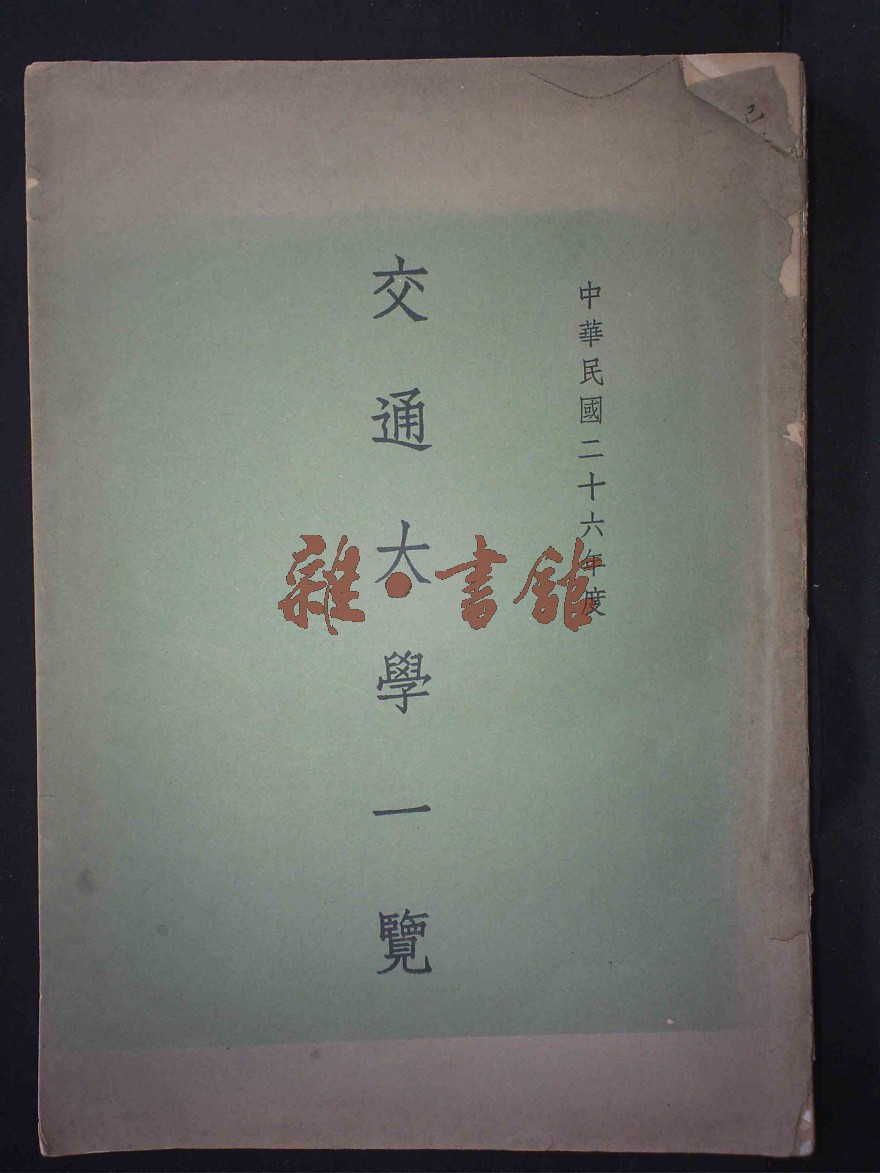 中華民國二十六年度
交通大學一覽
雜·書館